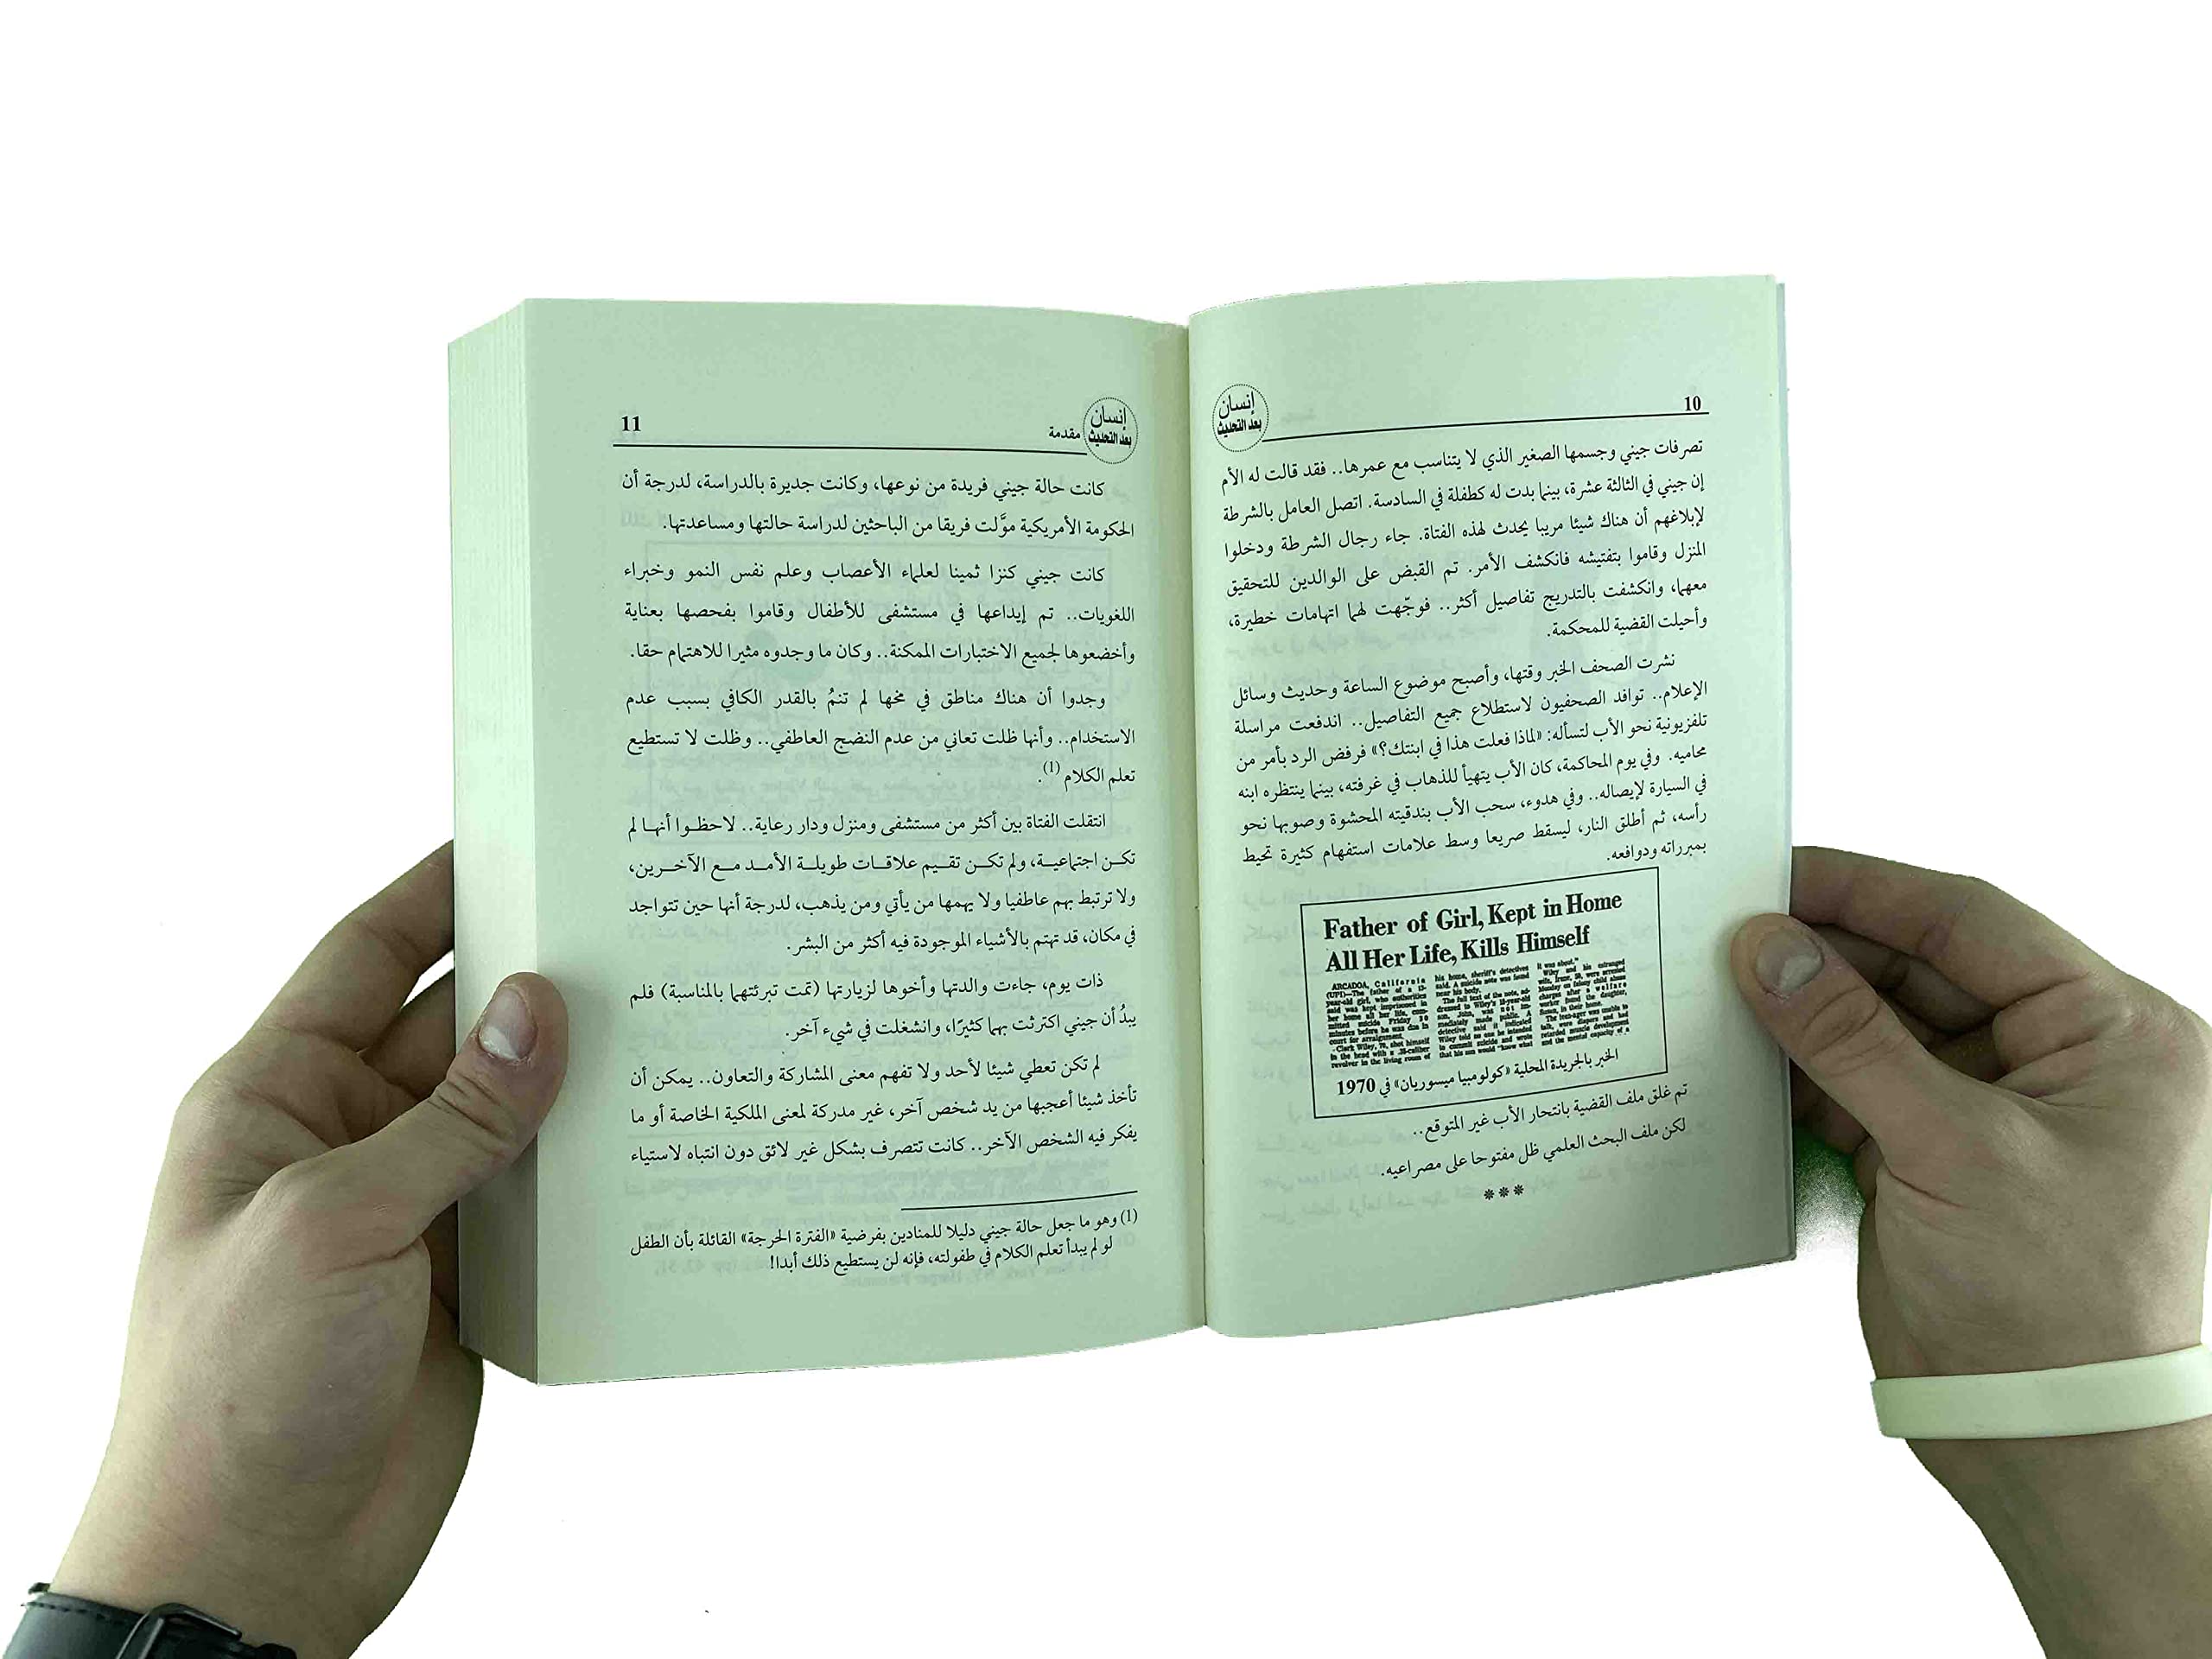 10
إنسان
بعد التحديث
تصرفات جيني وجسمها الصغير الذي لا يتناسب مع عمرها.. فقد قالت له الأم
إن جيني في الثالثة عشرة، بينما بدت له كطفلة في السادسة. اتصل العامل بالشرطة
لإبلاغهم أن هناك شيئا مريبا يحدث لهذه الفتاة. جاء رجال الشرطة ودخلوا
المنزل وقاموا بتفتيشه فانكشف الأمر. تم القبض على الوالدين للتحقيق
معهما، وانكشفت بالتدريج تفاصيل أكثر.. فوجّهت لهما اتهامات خطيرة،
وأحيلت القضية للمحكمة.
نشرت الصحف الخبر وقتها، وأصبح موضوع الساعة وحديث وسائل
الإعلام.. توافد الصحفيون لاستطلاع جميع التفاصيل.. اندفعت مراسلة
تلفزيونية نحو الأب لتسأله: «لماذا فعلت هذا في ابنتك؟» فرفض الرد بأمر من
محاميه. وفي يوم المحاكمة، كان الأب يتهيأ للذهاب في غرفته، بينما ينتظره ابنه
في السيارة لإيصاله.. وفي هدوء، سحب الأب بندقيته المحشوة وصوبها نحو
رأسه، ثم أطلق النار، ليسقط صريعا وسط علامات استفهام كثيرة تحيط
بمبرراته ودوافعه.
Father of Girl, Kept in Home
All Her Life, Kills Himself
ARCADOA, California
(UPI)—The father of a 13-
year-old girl, who authorities
said was kept imprisoned in
her home all her life, com-
mitted suicide Friday 30
minutes before he was due in
court for arraignment.
Clark Wiley, 70, shot himself
in the head with a .38-caliber
revolver in the living room of
his home, sheriff's detectives
said. A suicide note was found
near his body.
The full text of the note, ad-
dressed to Wiley's 18-year-old
son, John, was not im-
mediately made public. A
detective said it indicated
Wiley told his son he intended
to commit suicide and wrote
that his son would "know what
it was about."
Wiley and his estranged
wife, Irene, 50, were arrested
Monday on felony child abuse
charges after a welfare
worker found the daughter,
Susan, in their home.
The teen-ager was unable to
talk, wore diapers and had
retarded muscle development
and the mental capacity of a
الخبر بالجريدة المحلية «كولومبيا ميسوريان» في 1970
تم غلق ملف القضية بانتحار الأب غير المتوقع..
لكن ملف البحث العلمي ظل مفتوحا على مصراعيه.
***
إنسان
بعد التحديث
مقدمة
11
كانت حالة جيني فريدة من نوعها، وكانت جديرة بالدراسة، لدرجة أن
الحكومة الأمريكية موَّلت فريقا من الباحثين لدراسة حالتها ومساعدتها.
كانت جيني كنزا ثمينا لعلماء الأعصاب وعلم نفس النمو وخبراء
اللغويات.. تم إيداعها في مستشفى للأطفال وقاموا بفحصها بعناية
وأخضعوها لجميع الاختبارات الممكنة.. وكان ما وجدوه مثيرا للاهتمام حقا.
وجدوا أن هناك مناطق في مخها لم تنمُ بالقدر الكافي بسبب عدم
الاستخدام.. وأنها ظلت تعاني من عدم النضج العاطفي.. وظلت لا تستطيع
تعلم الكلام (1).
انتقلت الفتاة بين أكثر من مستشفى ومنزل ودار رعاية.. لاحظوا أنها لم
تكن اجتماعية، ولم تكن تقيم علاقات طويلة الأمد مع الآخرين،
ولا ترتبط بهم عاطفيا ولا يهمها من يأتي ومن يذهب، لدرجة أنها حين تتواجد
في مكان، قد تهتم بالأشياء الموجودة فيه أكثر من البشر.
ذات يوم، جاءت والدتها وأخوها لزيارتها (تمت تبرئتهما بالمناسبة) فلم
يبدُ أن جيني اكترثت بهما كثيرًا، وانشغلت في شيء آخر.
لم تكن تعطي شيئا لأحد ولا تفهم معنى المشاركة والتعاون.. يمكن أن
تأخذ شيئا أعجبها من يد شخص آخر، غير مدركة لمعنى الملكية الخاصة أو ما
يفكر فيه الشخص الآخر.. كانت تتصرف بشكل غير لائق دون انتباه لاستياء
(1) وهو ما جعل حالة جيني دليلا للمنادين بفرضية «الفترة الحرجة» القائلة بأن الطفل
لو لم يبدأ تعلم الكلام في طفولته، فإنه لن يستطيع ذلك أبدا!